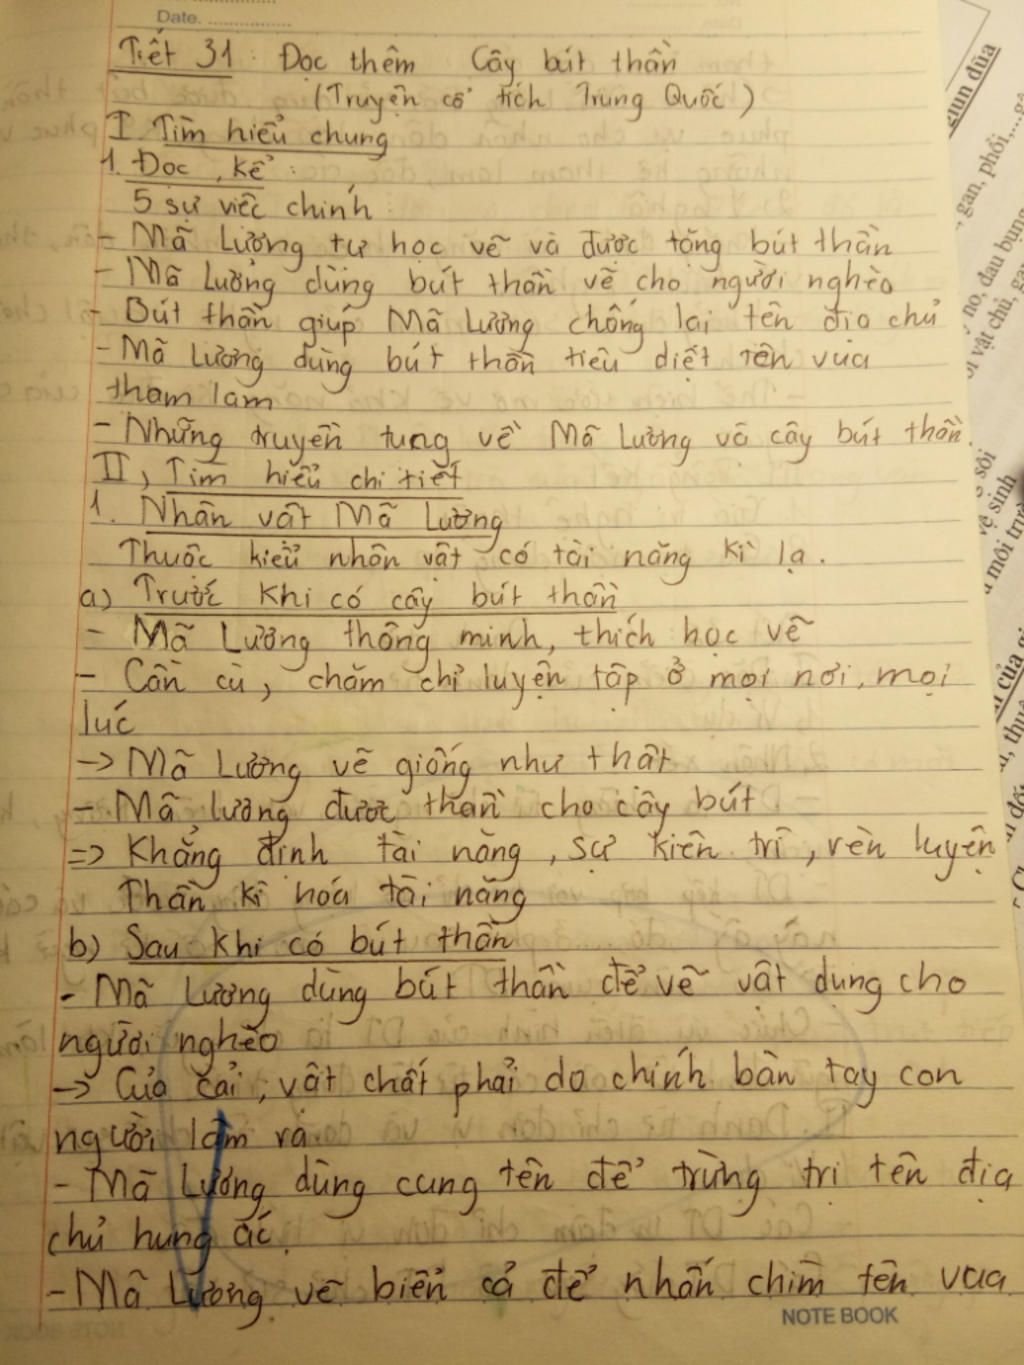 Date.
Tiết 31: Đọc thêm Cây bút thần
(Truyện cổ tích Trung Quốc)
I Tìm hiểu chung
1. Đọc, kể:
5 sự việc chính:
- Mã Lương tự học vẽ và được tặng bút thần
- Mã Lương dùng bút thần vẽ cho người nghèo
- Bút thần giúp Mã Lương chống lại tên địa chủ
- Mã Lương dùng bút thần tiêu diệt tên vua
tham lam
- Những truyền tụng về Mã Lương và cây bút thần.
II, Tìm hiểu chi tiết
1. Nhân vật Mã Lương
Thuộc kiểu nhân vật có tài năng kì lạ.
a) Trước khi có cây bút thần
- Mã Lương thông minh, thích học vẽ
- Cần cù, chăm chỉ luyện tập ở mọi nơi, mọi
lúc
-> Mã Lương vẽ giống như thật
- Mã Lương được thần cho cây bút
=> Khẳng định tài năng, sự kiên trì, rèn luyện
Thần kì hóa tài năng
b) Sau khi có bút thần
- Mã Lương dùng bút thần để vẽ vật dụng cho
người nghèo
-> Của cải, vật chất phải do chính bàn tay con
người làm ra.
- Mã Lương dùng cung tên để trừng trị tên địa
chủ hung ác.
- Mã Lương vẽ biển cả để nhấn chìm tên vua
NOTE BOOK
giun đũa
gan, phổi,...
no, đau bụng
vật chủ,
sôi
vệ sinh
môi
của